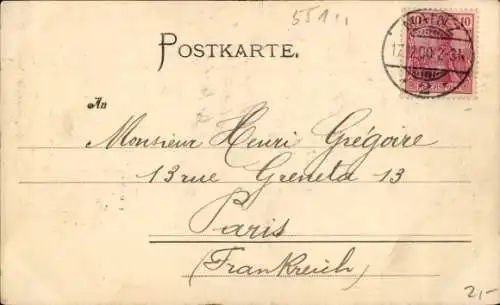 551
POSTKARTE.
An
Monsieur Henri Grégoire
13 rue Greneta 13
Paris
(Frankreich)
10 10
2-3N
2,-